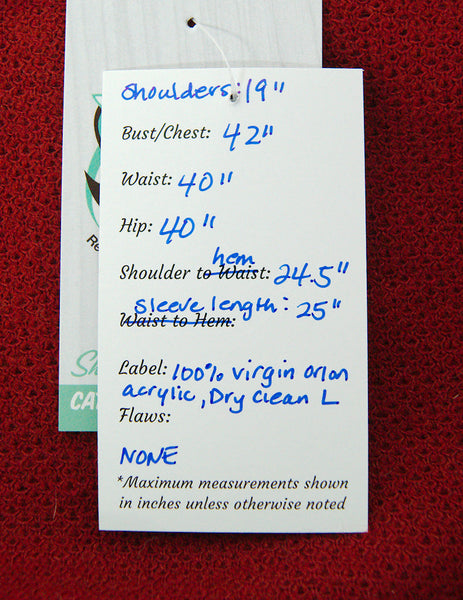 Shoulders: 19"
Bust/Chest: 42"
Waist: 40"
Hip: 40"
hem
Shoulder to Waist: 24.5"
sleeve length: 25"
Waist to Hem:
Label: 100% virgin orlon
acrylic, Dry clean L
Flaws:
NONE
*Maximum measurements shown
in inches unless otherwise noted
Re
Sh
CAT